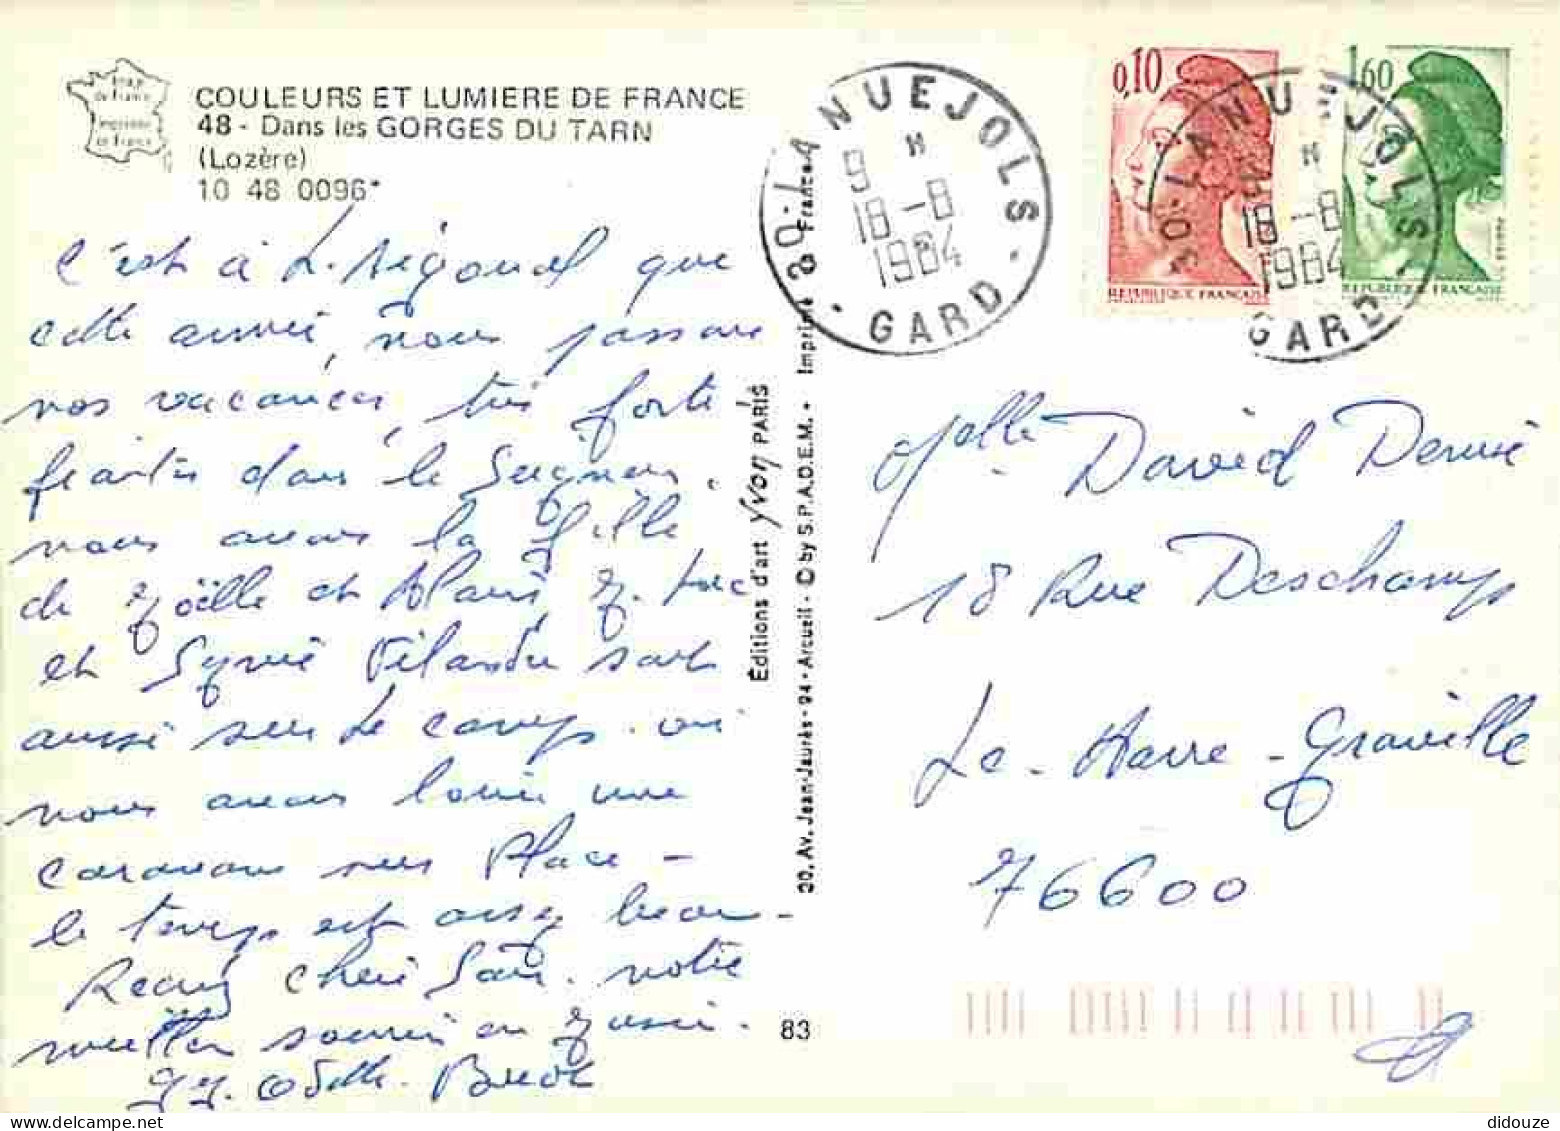 COULEURS ET LUMIERE DE FRANCE
48 - Dans les GORGES DU TARN
(Lozère)
10 48 0096*
C'est à L'Aigoual que
cette année, nous passons
nos vacances, très forte
dans le Seigneur.
nous avons la fille
de Joëlle et
et Sylvie sont
aussi sur le camp. où
nous avons loué une
caravane sur Place -
le temps est assez beau -
Recevez chère Sœur. notre
meilleur souvenir en
Odette.
Éditions d'art Yvon PARIS
20, Av. Jean-Jaurès - 94 - Arcueil - © by S.P.A.D.E.M. • Imprimé France
83
30-LANUEJOLS
9 H
18-8
1984
GARD
0,10
REPUBLIQUE FRANÇAISE
1,60
REPUBLIQUE FRANÇAISE
30-LANUEJOLS
H
18-8
1984
GARD
Melle David Denise
18 Rue Deschamps
Le Havre - Graville
76600
didouze